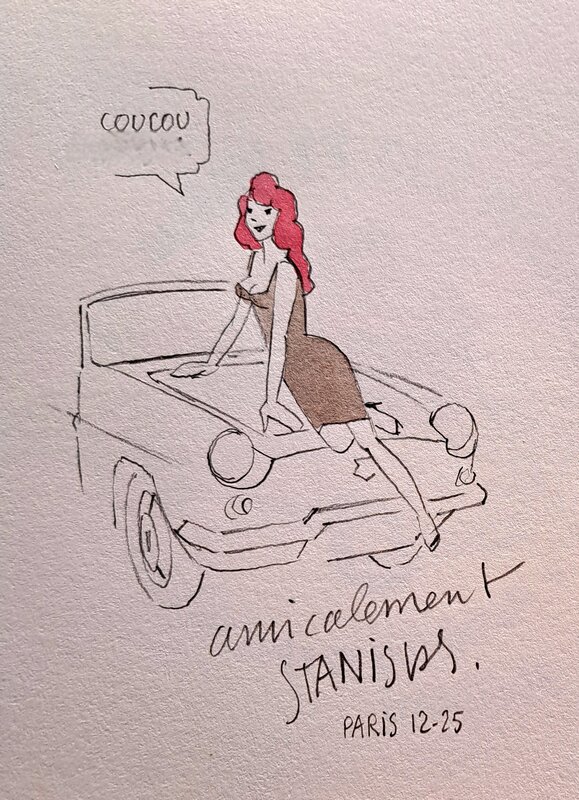 COUCOU
amicalement
STANISLAS.
PARIS 12-25